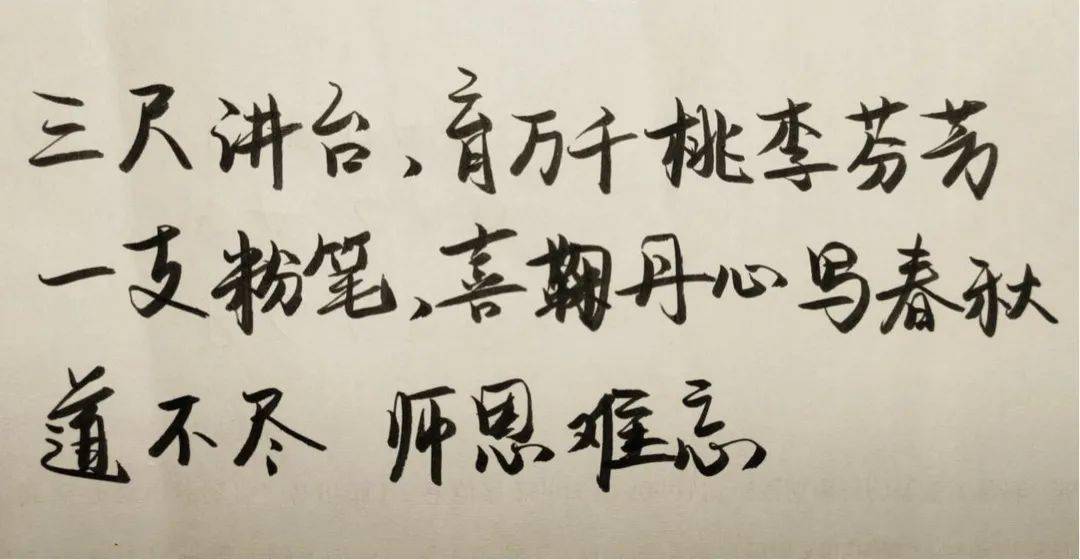 三尺讲台、育万千桃李芬芳
一支粉笔、喜鞠丹心写春秋
道不尽 师恩难忘